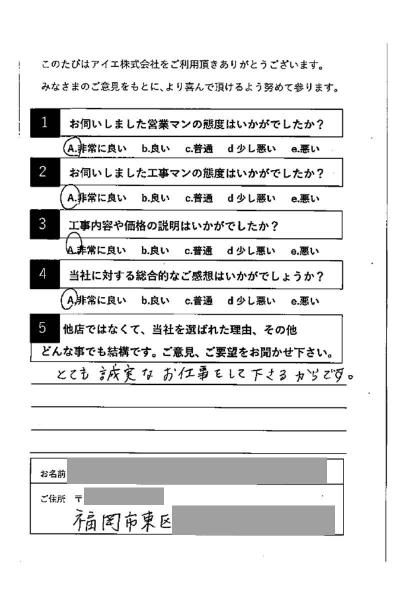 このたびはアイエ株式会社をご利用頂きありがとうございます。
みなさまのご意見をもとに、より喜んで頂けるよう努めて参ります。
1 お伺いしました営業マンの態度はいかがでしたか？
A.非常に良い b.良い c.普通 d 少し悪い e.悪い
2 お伺いしました工事マンの態度はいかがでしたか？
A.非常に良い b.良い c.普通 d 少し悪い e.悪い
3 工事内容や価格の説明はいかがでしたか？
A.非常に良い b.良い c.普通 d 少し悪い e.悪い
4 当社に対する総合的なご感想はいかがでしょうか？
A.非常に良い b.良い c.普通 d 少し悪い e.悪い
5 他店ではなくて、当社を選ばれた理由、その他
どんな事でも結構です。ご意見、ご要望をお聞かせ下さい。
とても誠実なお仕事をして下さるからです。
お名前
ご住所 〒
福岡市東区